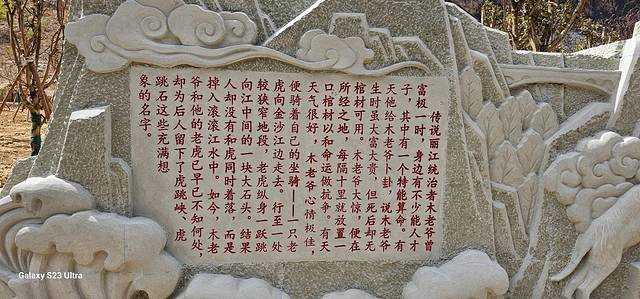 传说丽江统治者木老爷曾
富极一时，身边有不少能人才
子，其中有一个特能算命。有
天他给木老爷卜卦，说木老爷
生时虽大富大贵，但死后却无
棺材可用。木老爷大惊，便在
所经之地，每隔十里就放置一
口棺材以和命运做抗争。有天
天气很好，木老爷心情极佳，
便骑着自己的坐骑——一只老
虎向金沙江边走去，行至一处
较狭窄地段，老虎纵身一跃跳
向江中间的一块大石头，结果
人却没有和虎同时着落，而是
掉入滚滚江水中。如今，木老
爷和他的老虎已早已不知何处，
却为后人留下了虎跳峡、虎
跳石这些充满想
象的名字。
Galaxy S23 Ultra